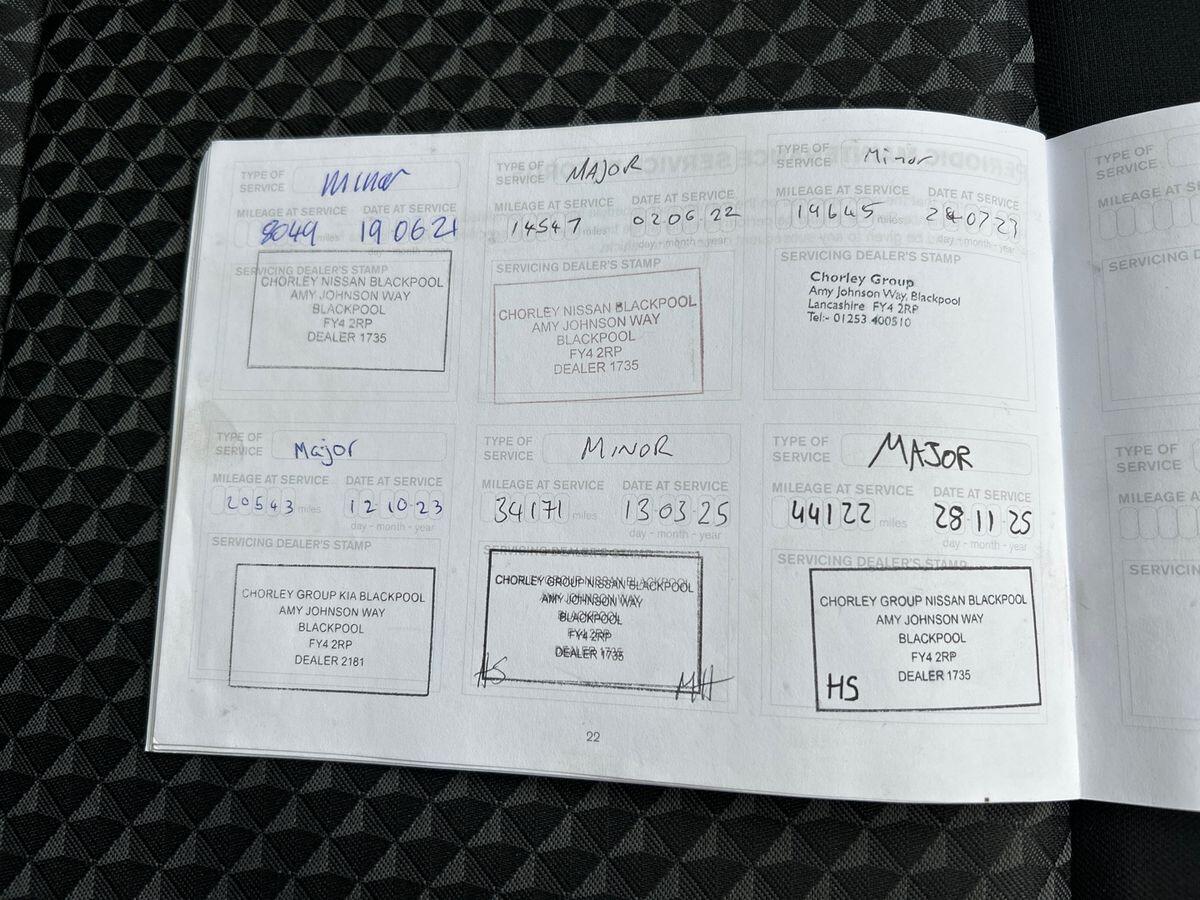 TYPE OF SERVICE Minor
MILEAGE AT SERVICE DATE AT SERVICE
8049 19 06 21
SERVICING DEALER'S STAMP
CHORLEY NISSAN BLACKPOOL
AMY JOHNSON WAY
BLACKPOOL
FY4 2RP
DEALER 1735
TYPE OF SERVICE MAJOR
MILEAGE AT SERVICE DATE AT SERVICE
14547 miles 02 06 22
day - month - year
SERVICING DEALER'S STAMP
CHORLEY NISSAN BLACKPOOL
AMY JOHNSON WAY
BLACKPOOL
FY4 2RP
DEALER 1735
TYPE OF SERVICE Minor
MILEAGE AT SERVICE DATE AT SERVICE
19645 miles 07 23
day - month - year
SERVICING DEALER'S STAMP
Chorley Group
Amy Johnson Way, Blackpool
Lancashire FY4 2RP
Tel:- 01253 400510
TYPE OF SERVICE Major
MILEAGE AT SERVICE DATE AT SERVICE
20543 miles 12 10 23
day - month - year
SERVICING DEALER'S STAMP
CHORLEY GROUP KIA BLACKPOOL
AMY JOHNSON WAY
BLACKPOOL
FY4 2RP
DEALER 2181
TYPE OF SERVICE MINOR
MILEAGE AT SERVICE DATE AT SERVICE
34171 miles 13 03 25
day - month - year
SERVICING DEALER'S STAMP
CHORLEY GROUP NISSAN BLACKPOOL
AMY JOHNSON WAY
BLACKPOOL
FY4 2RP
DEALER 1735
HS MH
TYPE OF SERVICE MAJOR
MILEAGE AT SERVICE DATE AT SERVICE
44122 miles 28 11 25
day - month - year
SERVICING DEALER'S STAMP
CHORLEY GROUP NISSAN BLACKPOOL
AMY JOHNSON WAY
BLACKPOOL
FY4 2RP
DEALER 1735
HS
22
TYPE OF
SERVICE
MILEAGE AT
SERVICING D
TYPE OF
SERVICE
MILEAGE A
SERVICIN